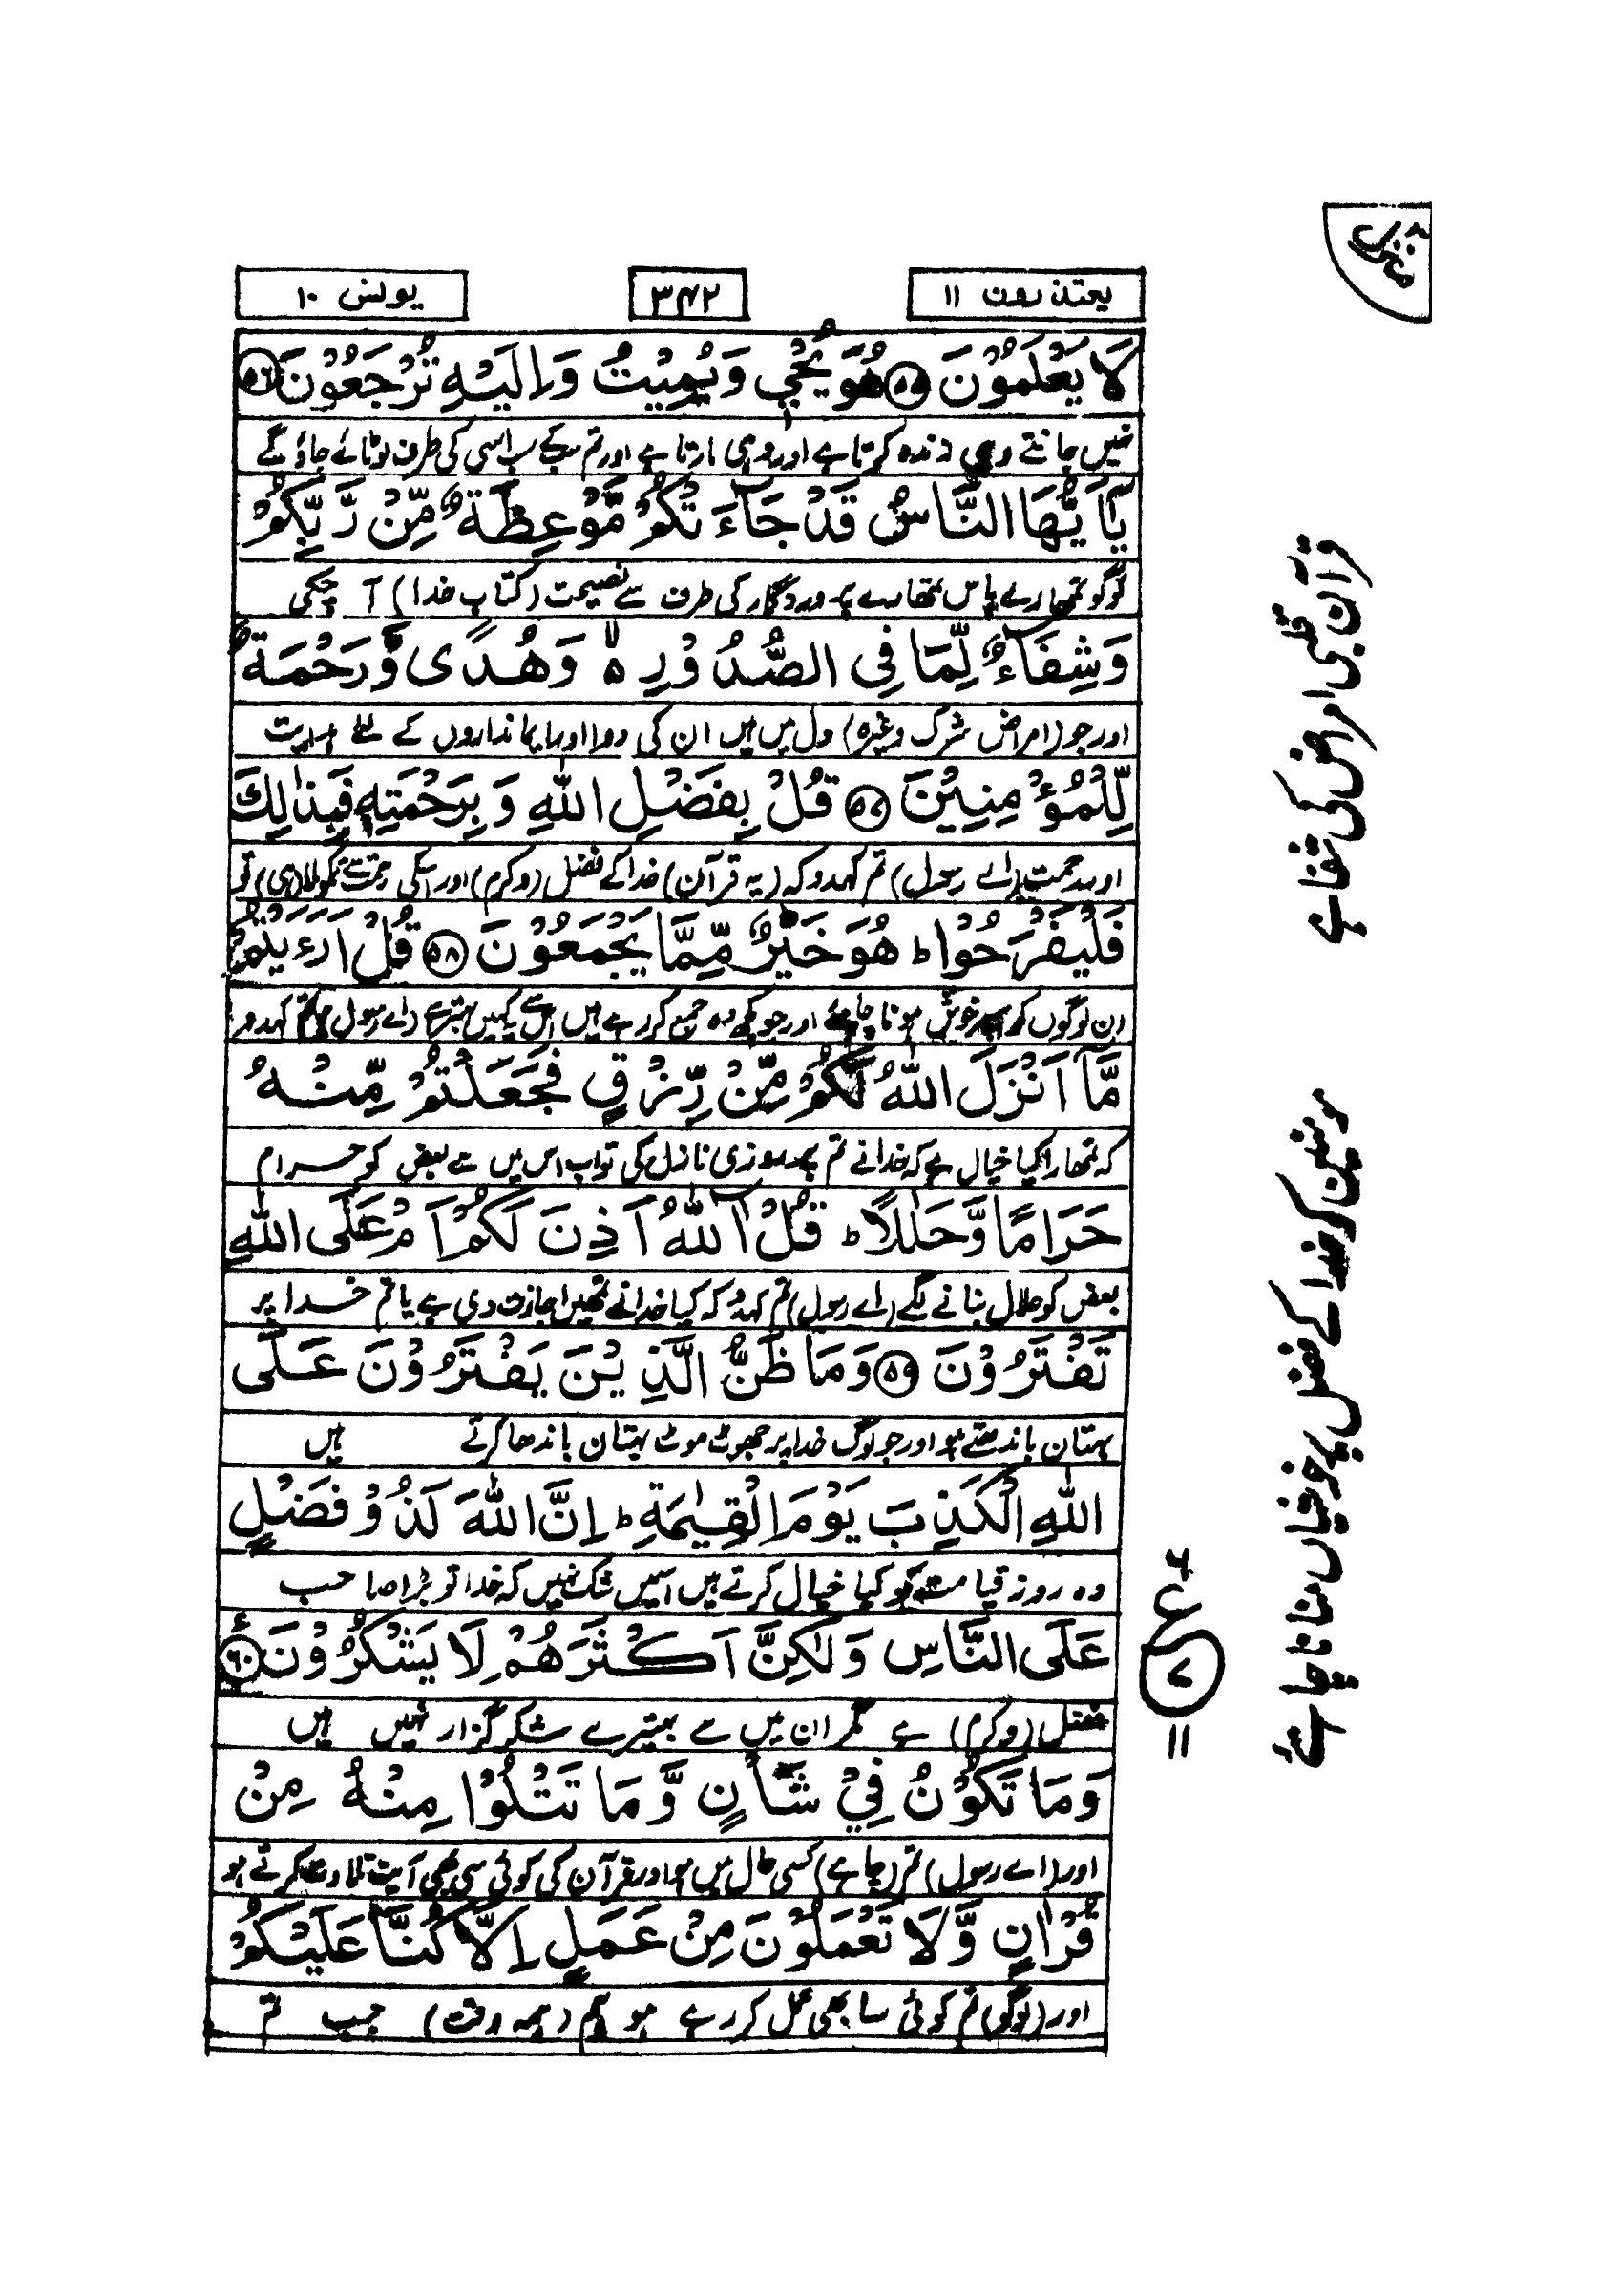 منزل ۳
یعتذرون ۱۱
۳۴۲
یونس ۱۰
لَا يَعْلَمُوْنَ ﴿۵۵﴾ هُوَ يُحْيٖ وَيُمِيْتُ وَاِلَيْهِ تُرْجَعُوْنَ ﴿۵۶﴾
نہیں جانتے وہی زندہ کرتا ہے اور وہی مارتا ہے اور تم سب کے سب اسی کی طرف لوٹائے جاؤ گے
يٰٓاَيُّهَا النَّاسُ قَدْ جَآءَتْكُمْ مَّوْعِظَةٌ مِّنْ رَّبِّكُمْ
لوگو تمھارے پاس تمھارے پروردگار کی طرف سے نصیحت (کتاب خدا) آ چکی
وَشِفَآءٌ لِّمَا فِى الصُّدُوْرِ ۙ وَهُدًى وَّرَحْمَةٌ
اور جو (امراض شرک وغیرہ) دل میں ہیں ان کی دوا اور ایمانداروں کے لئے ہدایت
لِّلْمُؤْمِنِيْنَ ﴿۵۷﴾ قُلْ بِفَضْلِ اللّٰهِ وَبِرَحْمَتِهٖ فَبِذٰلِكَ
اور رحمت (اے رسول) تم کہدو کہ (یہ قرآن) خدا کے فضل (و کرم) اور اسکی رحمت سے تمکو ملا (ہی) تو
فَلْيَفْرَحُوْا ؕ هُوَ خَيْرٌ مِّمَّا يَجْمَعُوْنَ ﴿۵۸﴾ قُلْ اَرَءَيْتُمْ
ان لوگوں کو اس پر خوش ہونا چاہئے اور جو کچھ وہ جمع کر رہے ہیں اس سے کہیں بہتر ہے (اے رسول) تم کہدو
مَّآ اَنْزَلَ اللّٰهُ لَكُمْ مِّنْ رِّزْقٍ فَجَعَلْتُمْ مِّنْهُ
کہ تمھارا کیا خیال ہے کہ خدا نے تم پر روزی نازل کی تو اب اس میں سے بعض کو حرام
حَرَامًا وَّحَلٰلًا ؕ قُلْ آٰللّٰهُ اَذِنَ لَكُمْ اَمْ عَلَى اللّٰهِ
بعض کو حلال بنانے لگے (اے رسول) تم کہدو کہ کیا خدا نے تمھیں اجازت دی ہے یا تم خدا پر
تَفْتَرُوْنَ ﴿۵۹﴾ وَمَا ظَنُّ الَّذِيْنَ يَفْتَرُوْنَ عَلَى
بہتان باندھتے ہو اور جو لوگ خدا پر جھوٹ موٹ بہتان باندھا کرتے ہیں
اللّٰهِ الْكَذِبَ يَوْمَ الْقِيٰمَةِ ؕ اِنَّ اللّٰهَ لَذُوْ فَضْلٍ
وہ روز قیامت کو کیا خیال کرتے ہیں اسمیں شک نہیں کہ خدا تو بڑا صاحب
عَلَى النَّاسِ وَلٰكِنَّ اَكْثَرَهُمْ لَا يَشْكُرُوْنَ ﴿۶۰﴾
فضل (و کرم) ہے مگر ان میں سے بہتیرے شکر گزار نہیں ہیں
وَمَا تَكُوْنُ فِيْ شَاْنٍ وَّمَا تَتْلُوْا مِنْهُ مِنْ
اور (اے رسول) تم (چاہے) کسی حال میں ہو اور قرآن کی کوئی سی بھی آیت تلاوت کرتے ہو
قُرْاٰنٍ وَّلَا تَعْمَلُوْنَ مِنْ عَمَلٍ اِلَّا كُنَّا عَلَيْكُمْ
اور (لوگو) تم کوئی سا بھی عمل کر رہے ہو ہم (ہمہ وقت) جب تم
قرآن قلبی امراض کی شفا ہے
مومنین کو خدا کے فضل پر خوشیاں منانا چاہئے
۶
ع
۷
۱۱